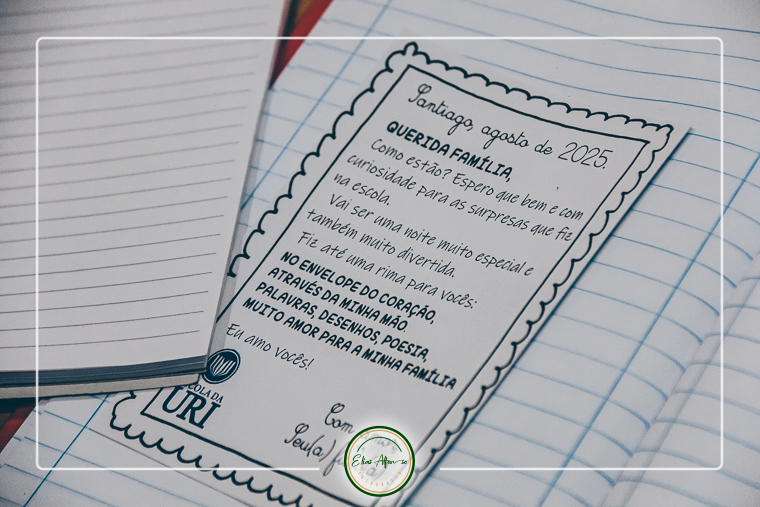 Santiago, agosto de 2025.
QUERIDA FAMÍLIA,
Como estão? Espero que bem e com
curiosidade para as surpresas que fiz
na escola.
Vai ser uma noite muito especial e
também muito divertida.
Fiz até uma rima para vocês:
NO ENVELOPE DO CORAÇÃO,
ATRAVÉS DA MINHA MÃO
PALAVRAS, DESENHOS, POESIA,
MUITO AMOR PARA A MINHA FAMÍLIA
Eu amo vocês!
URI
Com
Seu(a)